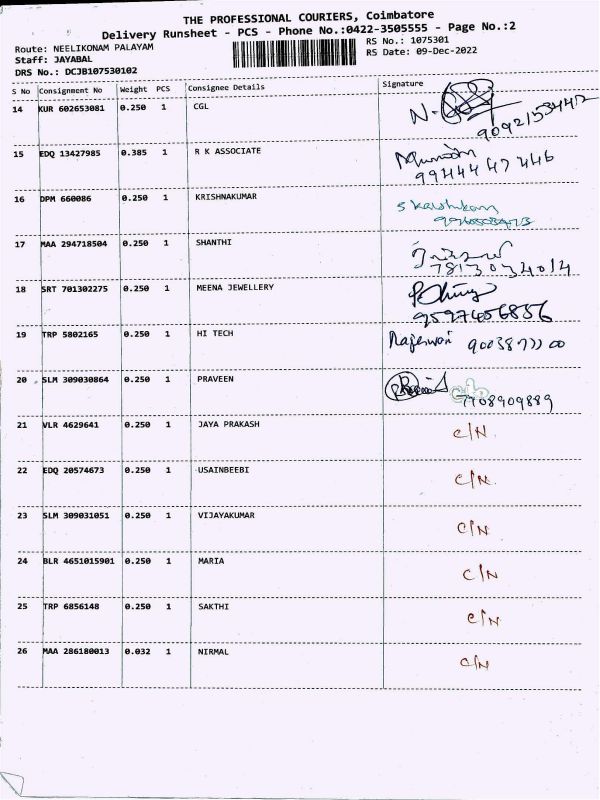 THE PROFESSIONAL COURIERS, Coimbatore
Delivery Runsheet - PCS - Phone No.:0422-3505555 - Page No.:2
Route: NEELIKONAM PALAYAM
RS No.: 1075301
Staff: JAYABAL
RS Date: 09-Dec-2022
DRS No.: DCJB107530102
S No Consignment No Weight PCS Consignee Details Signature
14 KUR 602653081 0.250 1 CGL N.
15 EDQ 13427985 0.385 1 R K ASSOCIATE
9944447446
16 DPM 660086 0.250 1 KRISHNAKUMAR
17 MAA 294718504 0.250 1 SHANTHI
7813034014
18 SRT 701302275 0.250 1 MEENA JEWELLERY
9597456856
19 TRP 5802165 0.250 1 HI TECH
20 SLM 309030864 0.250 1 PRAVEEN
7708909889
21 VLR 4629641 0.250 1 JAYA PRAKASH C/N
22 EDQ 20574673 0.250 1 USAINBEEBI C/N
23 SLM 309031051 0.250 1 VIJAYAKUMAR C/N
24 BLR 4651015901 0.250 1 MARIA C/N
25 TRP 6856148 0.250 1 SAKTHI C/N
26 MAA 286180013 0.032 1 NIRMAL C/N